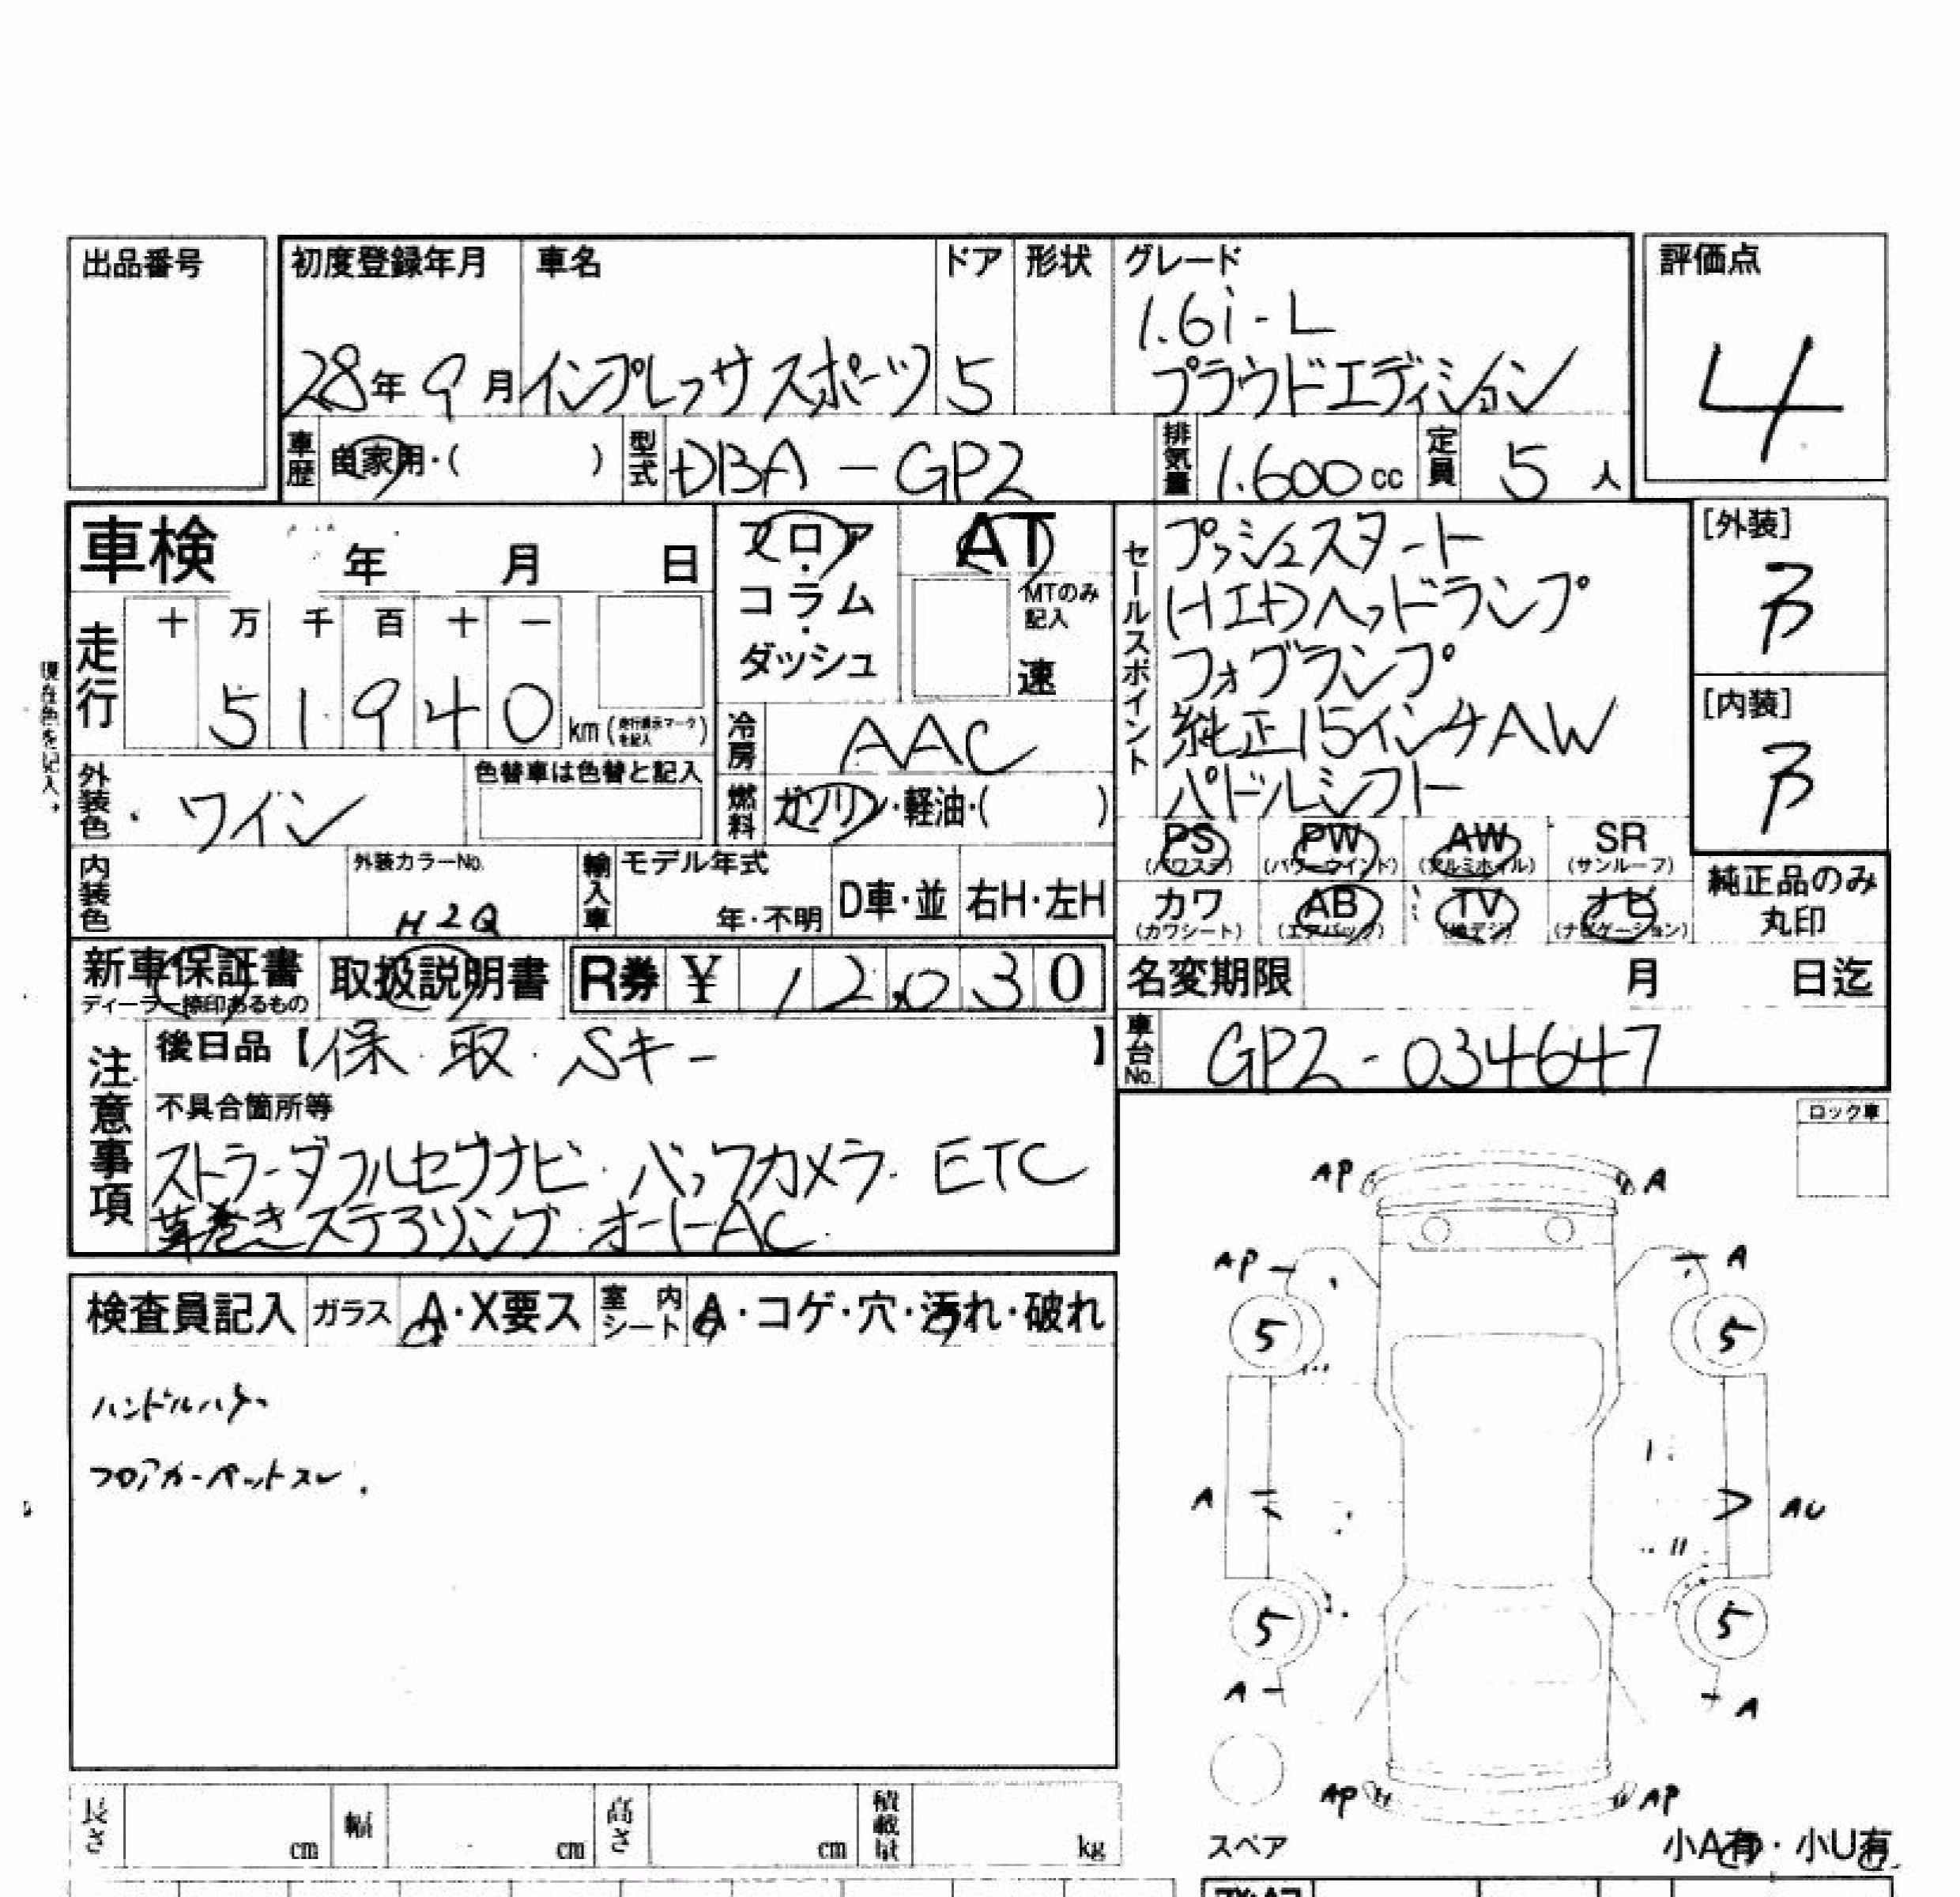 出品番号
初度登録年月 車名 ドア 形状 グレード 評価点
1.6i-L
28年9月 インプレッサスポーツ 5 プラウドエディション 4
車歴 自家用・( ) 型式 DBA-GP2 排気量 1.600cc 定員 5人
車検 年 月 日
フロア・コラム・ダッシュ
AT
MTのみ記入
速
セールスポイント
プッシュスタート
(HID)ヘッドランプ
フォグランプ
純正15インチAW
パドルシフト
[外装]
B
[内装]
B
走行 十 万 千 百 十 一
51940 km (走行表示マークを記入)
現在色を記入→
冷房 AAC
外装色 ・ワイン 色替車は色替と記入
燃料 ガソリン・軽油・( )
PS PW AW SR
(パワステ) (パワーウインド) (アルミホイル) (サンルーフ)
カワ AB TV ナビ
(カワシート) (エアバッグ) (地デジ) (ナビゲーション)
純正品のみ
丸印
内装色 外装カラーNo. H2Q 輸入車 モデル年式 年・不明 D車・並 右H・左H
新車保証書 取扱説明書 R券 ¥ 12,030
ディーラー捺印あるもの
名変期限 月 日迄
注意事項 後日品【保・取・Sキー】
車台No. GP2-034647
不具合箇所等
ストラーダフルセグナビ・バックカメラ・ETC
革巻きステアリング オートAC
ロック車
検査員記入 ガラス A・X要ス 室内シート A・コゲ・穴・汚れ・破れ
フロアカーペットスレ.
AP A
AP A
5 5
A AU
5 5
A A
AP AP
スペア 小A有・小U有
長さ cm 幅 cm 高さ cm 積載量 kg